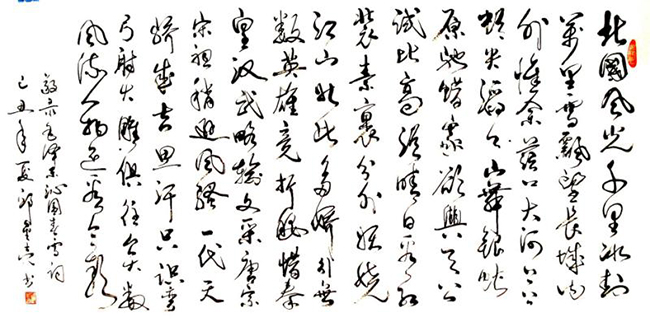 北國风光千里冰封
萬里雪飄望長城内
外惟余莽莽大河上下
頓失滔滔山舞銀蛇
原馳蜡象欲與天公
試比高須晴日看红
裝素裹分外妖嬈
江山如此多嬌引無
數英雄競折腰惜秦
皇汉武略輸文采唐宗
宋祖稍遜风騷一代天
驕成吉思汗只識彎
弓射大雕俱往矣數
风流人物还看今朝
敬录毛泽东沁园春雪詞
己丑年夏郭书